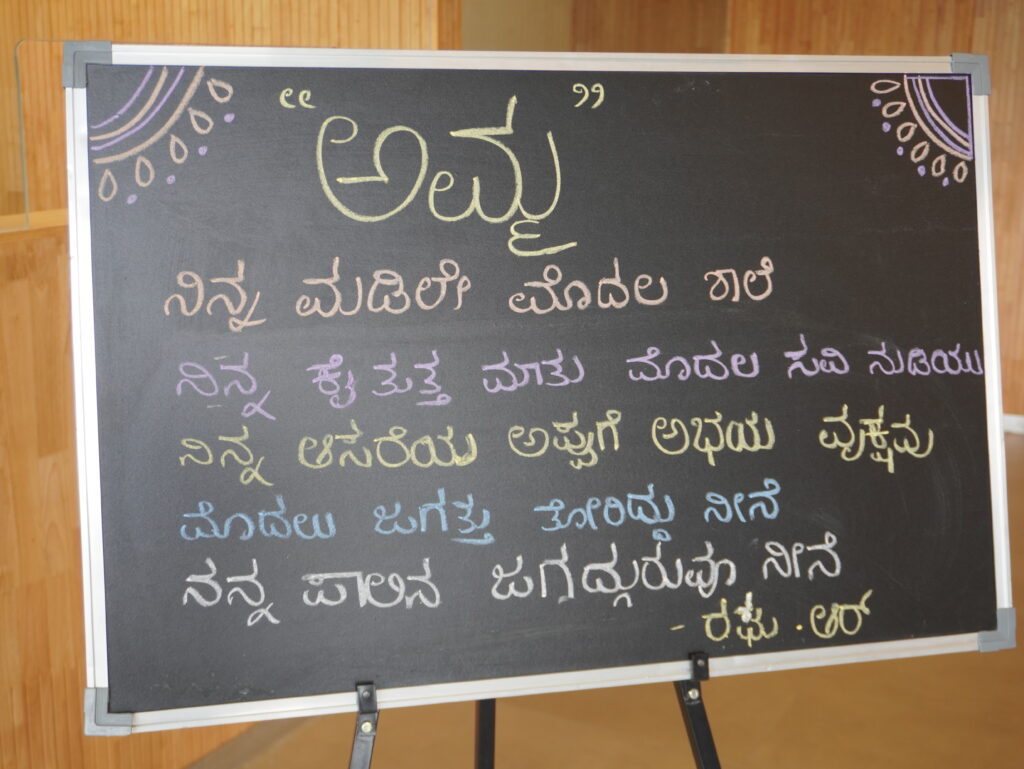 “ಅಮ್ಮ”
ನಿನ್ನ ಮಡಿಲೇ ಮೊದಲ ಶಾಲೆ
ನಿನ್ನ ಕೈ ತುತ್ತ ಮಾತು ಮೊದಲ ಸವಿ ನುಡಿಯು
ನಿನ್ನ ಆಸರೆಯ ಅಪ್ಪುಗೆ ಅಭಯ ವೃಕ್ಷವು
ಮೊದಲು ಜಗತ್ತು ತೋರಿದ್ದು ನೀನೆ
ನನ್ನ ಪಾಲಿನ ಜಗದ್ಗುರುವೂ ನೀನೆ
- ರಘು . ಆರ್